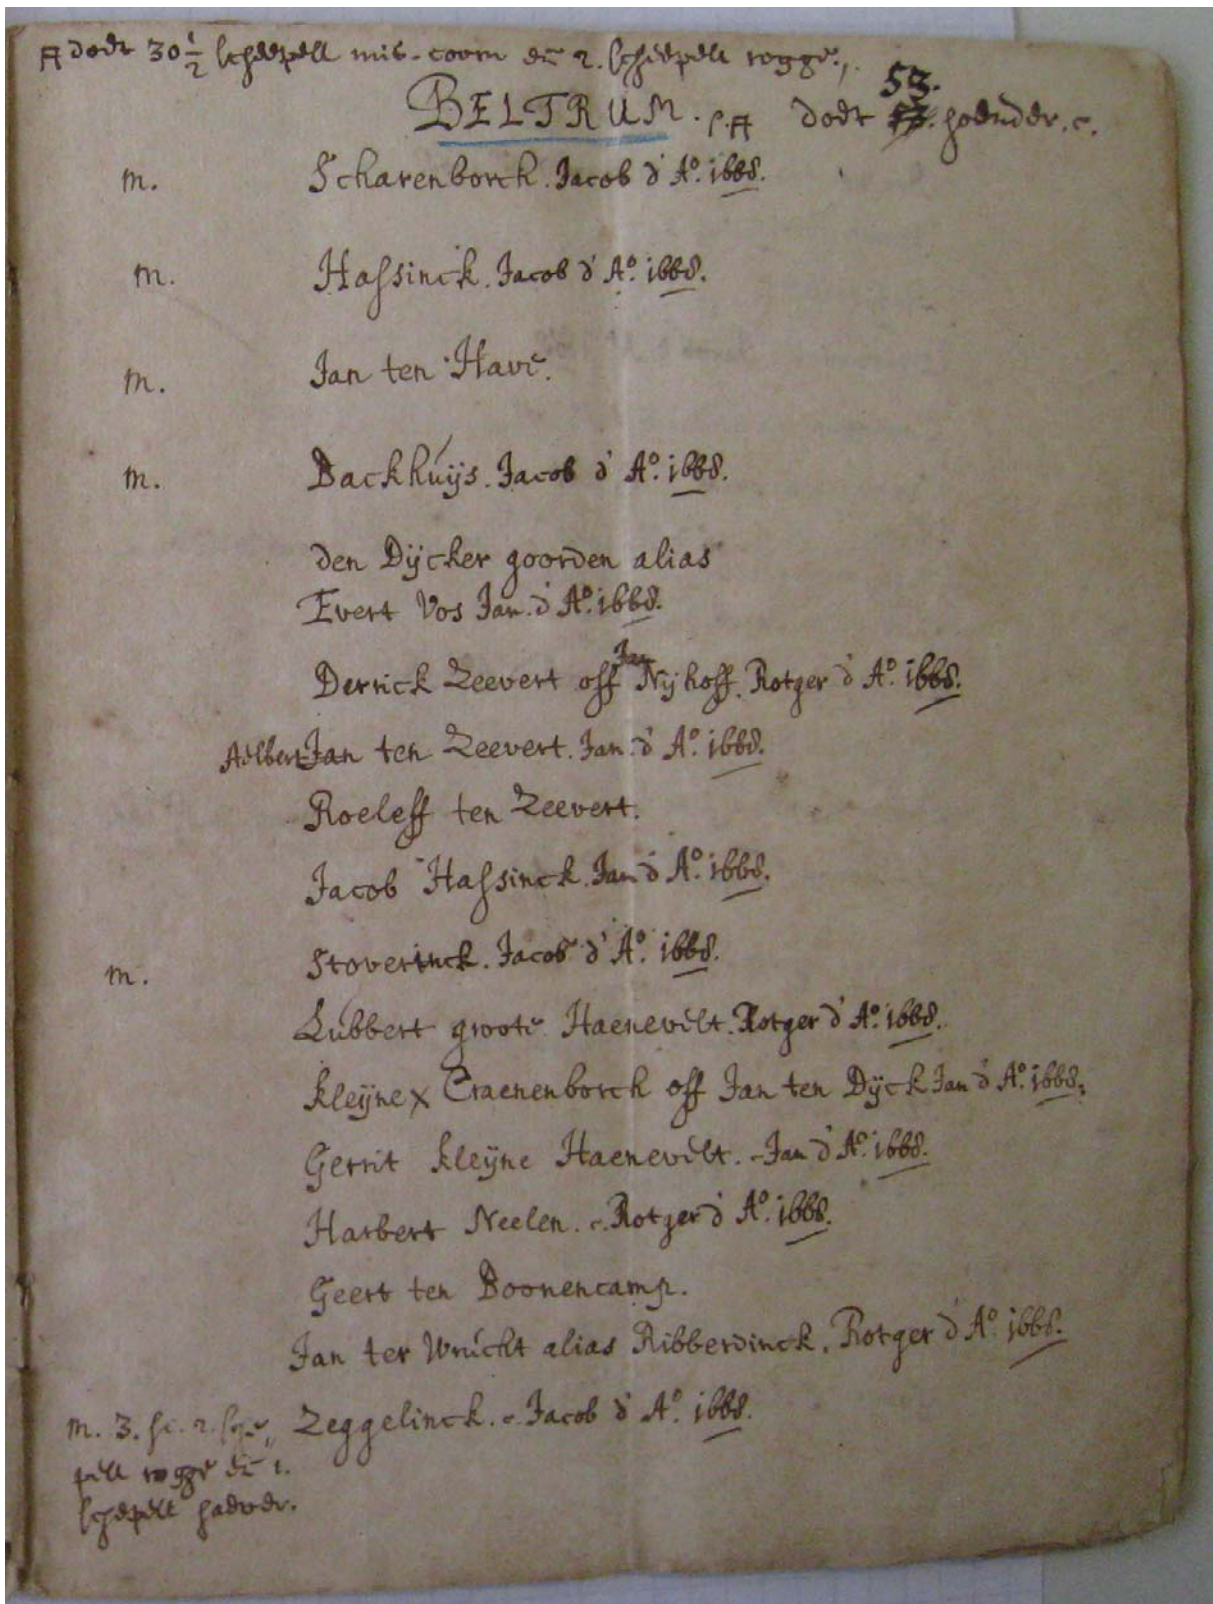 doet 30 1/2 scheepell mis-coorn en 2. scheepell rogge.
BELTRUM. doet 53. hoender.
m. Scharenborck. Jacob d' Aº. 1668.
m. Hassinck. Jacob d' Aº. 1668.
m. Jan ten Have.
m. Backhuijs. Jacob d' Aº. 1668.
den Dijcker goorden alias
Evert Vos Jan. d' Aº. 1668.
Derrick Zeevert off Jan Nijhoff. Rotger d' Aº. 1668.
Aelbert Jan ten Zeevert. Jan. d' Aº. 1668.
Roeleff ten Zeevert.
Jacob Hassinck. Jan d' Aº. 1668.
m. Stoverinck. Jacob d' Aº. 1668.
Lubbert groote Haenevelt. Rotger d' Aº. 1668.
kleijne x Craenenborck off Jan ten Dijck Jan d' Aº. 1668.
Gerrit kleijne Haenevelt. Jan d' Aº. 1668.
Harbert Neelen. Rotger d' Aº. 1668.
Geert ten Boonencamp.
Jan ter Wrucht alias Ribberdinck. Rotger d' Aº. 1668.
m. 3. Zeggelinck. Jacob d' Aº. 1668.
pell rogge en 1.
schepell haever.